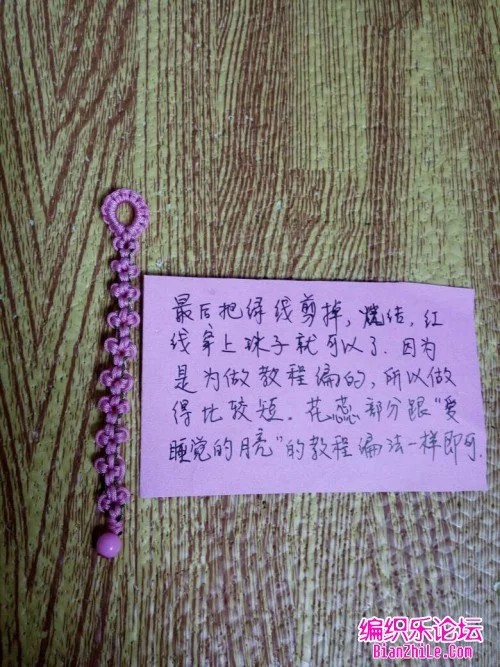 最后把绿线剪掉，烧结，红
线穿上珠子就可以了．因为
是为做教程编的，所以做
得比较短．花蕊部分跟“爱
睡觉的月亮”的教程编法一样即可．
编织乐论坛
BianZhiLe.Com